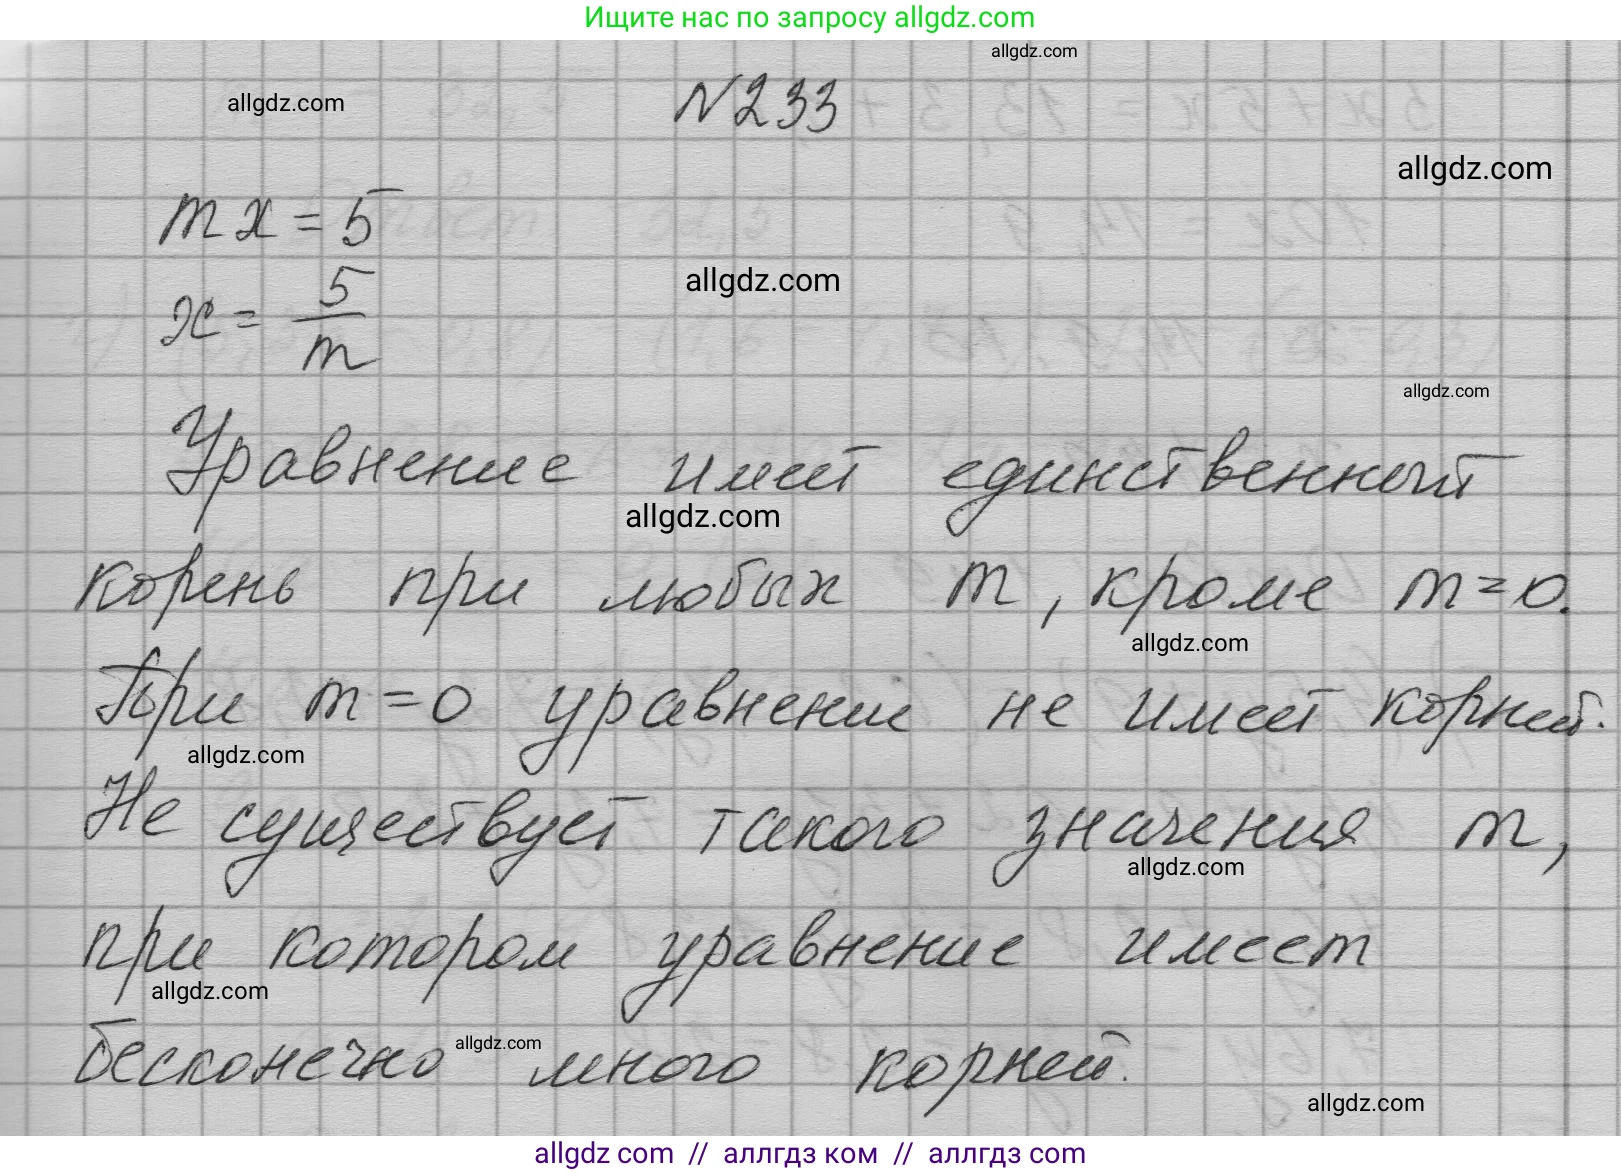 Ищите нас по запросу allgdz.com
allgdz.com
allgdz.com
№233
allgdz.com
mx = 5
allgdz.com
x = 5/m
allgdz.com
Уравнение имеет единственный
allgdz.com
корень при любых m, кроме m=0.
allgdz.com
При m=0 уравнение не имеет корней.
allgdz.com
Не существует такого значения m,
allgdz.com
при котором уравнение имеет
allgdz.com
бесконечно много корней.
allgdz.com
allgdz.com
allgdz com // аллгдз ком // allgdz com